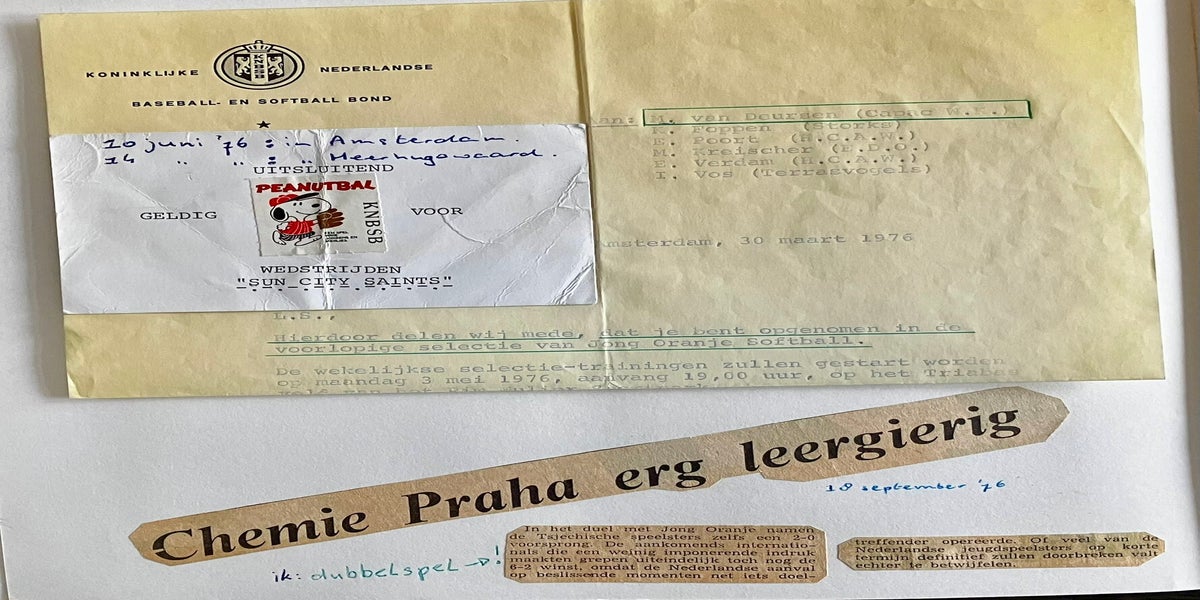 KONINKLIJKE NEDERLANDSE
BASEBALL- EN SOFTBALL BOND
10 juni '76 : in Amsterdam.
14 " " : " Heerhugowaard.
UITSLUITEND
PEANUTBAL
KNBSB
GELDIG VOOR
WEDSTRIJDEN
"SUN CITY SAINTS"
aan: M. van Deursen (Capac W.K.)
K. Foppen (Storks)
E. Poort (H.C.A.W.)
M. Kreischer (E.D.O.)
E. Verdam (H.C.A.W.)
I. Vos (Terrasvogels)
Amsterdam, 30 maart 1976
L.S.,
Hierdoor delen wij mede, dat je bent opgenomen in de
voorlopige selectie van Jong Oranje Softball.
De wekelijkse selectie-trainingen zullen gestart worden
op maandag 3 mei 1976, aanvang 19,00 uur, op het Triabas
Chemie Praha erg leergierig
18 september '76
ik: dubbelspel → !
In het duel met Jong Oranje namen
de Tsjechische speelsters zelfs een 2-0
voorsprong. De aankomende internatio-
nals die een weinig imponerende indruk
maakten grepen uiteindelijk toch nog de
6-2 winst, omdat de Nederlandse aanval
op beslissende momenten net iets doel-
treffender opereerde. Of veel van de
Nederlandse jeugdspeelsters op korte
termijn definitief zullen doorbreken valt
echter te betwijfelen.